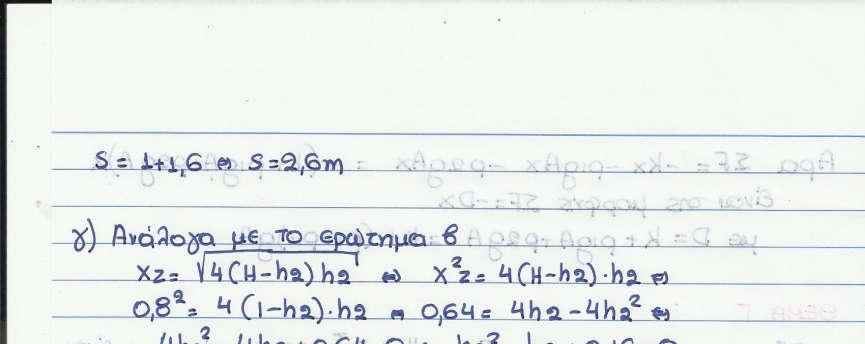 S = 1+1,6 ⇔ S=2,6m
γ) Ανάλογα με το ερώτημα β
x2= √4(H-h2)h2 ⇔ x²2= 4(H-h2)·h2 ⇔
0,8²= 4(1-h2)·h2 ⇔ 0,64= 4h2-4h2² ⇔